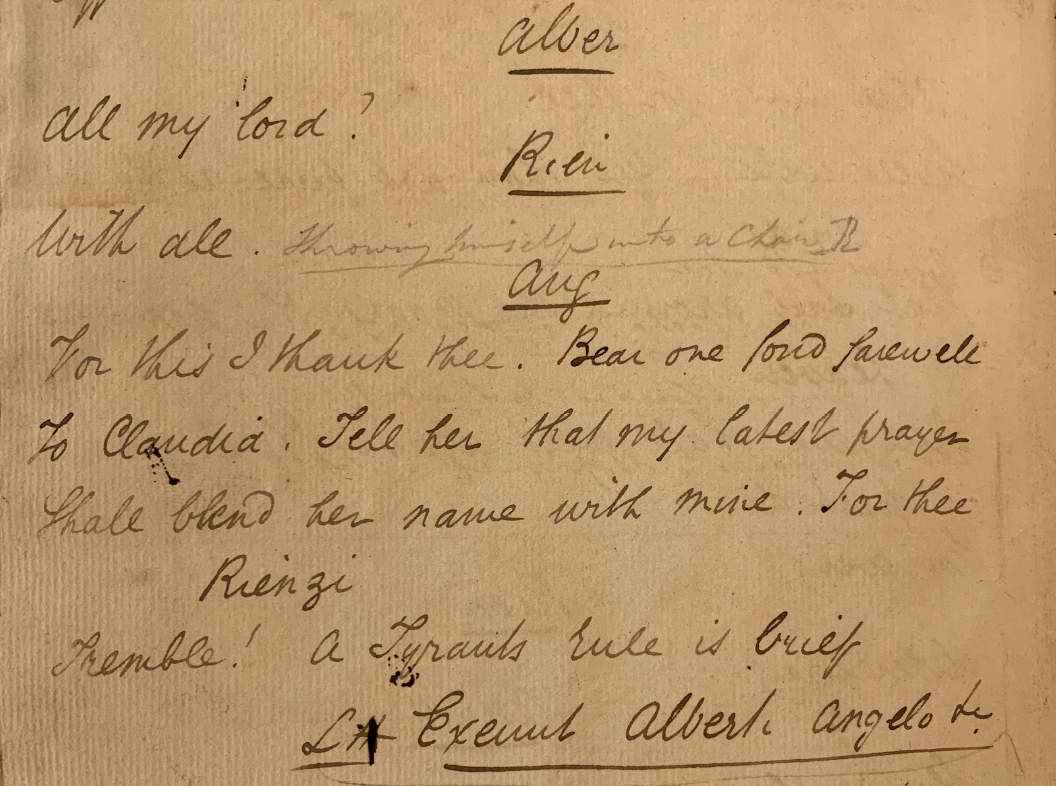 Alber
All my lord?
Rien
With all. Throwing himself into a Chair R
Ang
For this I thank thee. Bear one fond farewell
To Claudia. Tell her that my latest prayer
Shall blend her name with mine. For thee
Rienzi
Tremble! A Tyrants rule is brief
Exeunt Alberti Angelo &c.